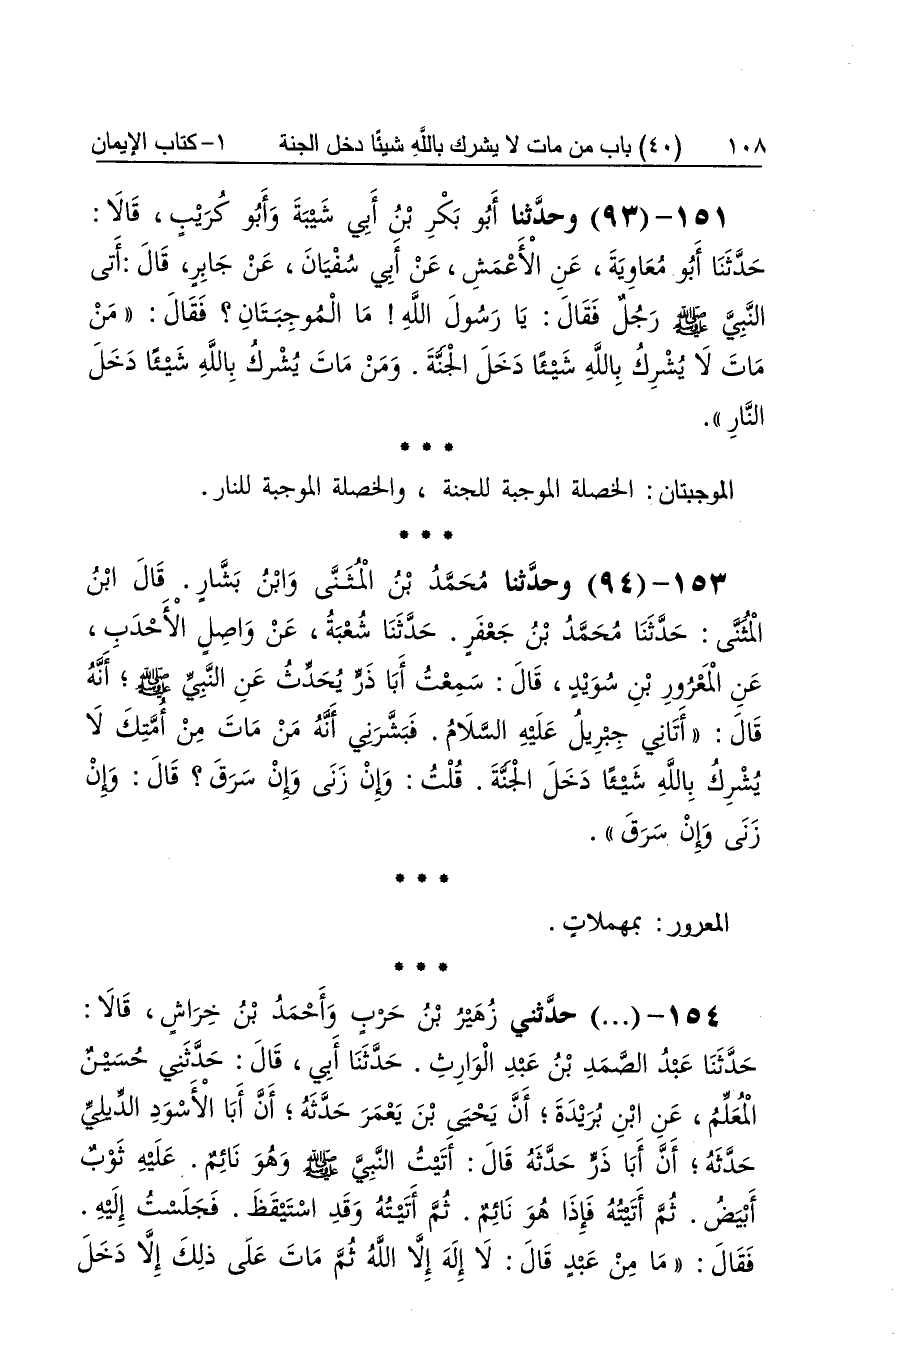 ١٠٨ (٤٠) باب من مات لا يشرك باللَّهِ شيئًا دخل الجنة ١- كتاب الإيمان
١٥١-(٩٣) وحدَّثنا أَبُو بَكْرِ بْنُ أَبِي شَيْبَةَ وَأَبُو كُرَيْبٍ ، قَالَا :
حَدَّثَنَا أَبُو مُعَاوِيَةَ ، عَنِ الْأَعْمَشِ ، عَنْ أَبِي سُفْيَانَ ، عَنْ جَابِرٍ، قَالَ :أَتى
النَّبِيَّ ﷺ رَجُلٌ فَقَالَ : يَا رَسُولَ اللَّهِ ! مَا الْمُوجِبَتَانِ ؟ فَقَالَ : « مَنْ
مَاتَ لَا يُشْرِكُ بِاللَّهِ شَيْئًا دَخَلَ الْجَنَّةَ . وَمَنْ مَاتَ يُشْرِكُ بِاللَّهِ شَيْئًا دَخَلَ
النَّارِ ».
* * *
الموجبتان : الخصلة الموجبة للجنة ، والخصلة الموجبة للنار .
* * *
١٥٣-(٩٤) وحدَّثنا مُحَمَّدُ بْنُ الْمُثَنَّى وَابْنُ بَشَّارٍ . قَالَ ابْنُ
الْمُثَنَّى : حَدَّثَنَا مُحَمَّدُ بْنُ جَعْفَرٍ . حَدَّثَنَا شُعْبَةُ ، عَنْ وَاصِلٍ الْأَحْدَبِ ،
عَنِ الْمَعْرُورِ بْنِ سُوَيْدٍ ، قَالَ : سَمِعْتُ أَبَا ذَرٍّ يُحَدِّثُ عَنِ النَّبِيِّ ﷺ ؛ أَنَّهُ
قَالَ : « أَتَانِي جِبْرِيلُ عَلَيْهِ السَّلَامُ . فَبَشَّرَنِي أَنَّهُ مَنْ مَاتَ مِنْ أُمَّتِكَ لَا
يُشْرِكُ بِاللَّهِ شَيْئًا دَخَلَ الْجَنَّةَ . قُلْتُ : وَإِنْ زَنَى وَإِنْ سَرَقَ ؟ قَالَ : وَإِنْ
زَنَى وَإِنْ سَرَقَ » .
* * *
المعرور : بمهملاتٍ .
* * *
١٥٤-(...) حدَّثني زُهَيْرُ بْنُ حَرْبٍ وَأَحْمَدُ بْنُ خِرَاشٍ ، قَالَا :
حَدَّثَنَا عَبْدُ الصَّمَدِ بْنُ عَبْدِ الْوَارِثِ . حَدَّثَنَا أَبِي ، قَالَ : حَدَّثَنِي حُسَيْنٌ
الْمُعَلِّمُ ، عَنِ ابْنِ بُرَيْدَةَ ؛ أَنَّ يَحْيَى بْنَ يَعْمَرَ حَدَّثَهُ ؛ أَنَّ أَبَا الْأَسْوَدِ الدِّيلِيَّ
حَدَّثَهُ ؛ أَنَّ أَبَا ذَرٍّ حَدَّثَهُ قَالَ : أَتَيْتُ النَّبِيَّ ﷺ وَهُوَ نَائِمٌ . عَلَيْهِ ثَوْبٌ
أَبْيَضُ . ثُمَّ أَتَيْتُهُ فَإِذَا هُوَ نَائِمٌ . ثُمَّ أَتَيْتُهُ وَقَدِ اسْتَيْقَظَ . فَجَلَسْتُ إِلَيْهِ .
فَقَالَ : « مَا مِنْ عَبْدٍ قَالَ : لَا إِلَهَ إِلَّا اللَّهُ ثُمَّ مَاتَ عَلَى ذلِكَ إِلَّا دَخَلَ